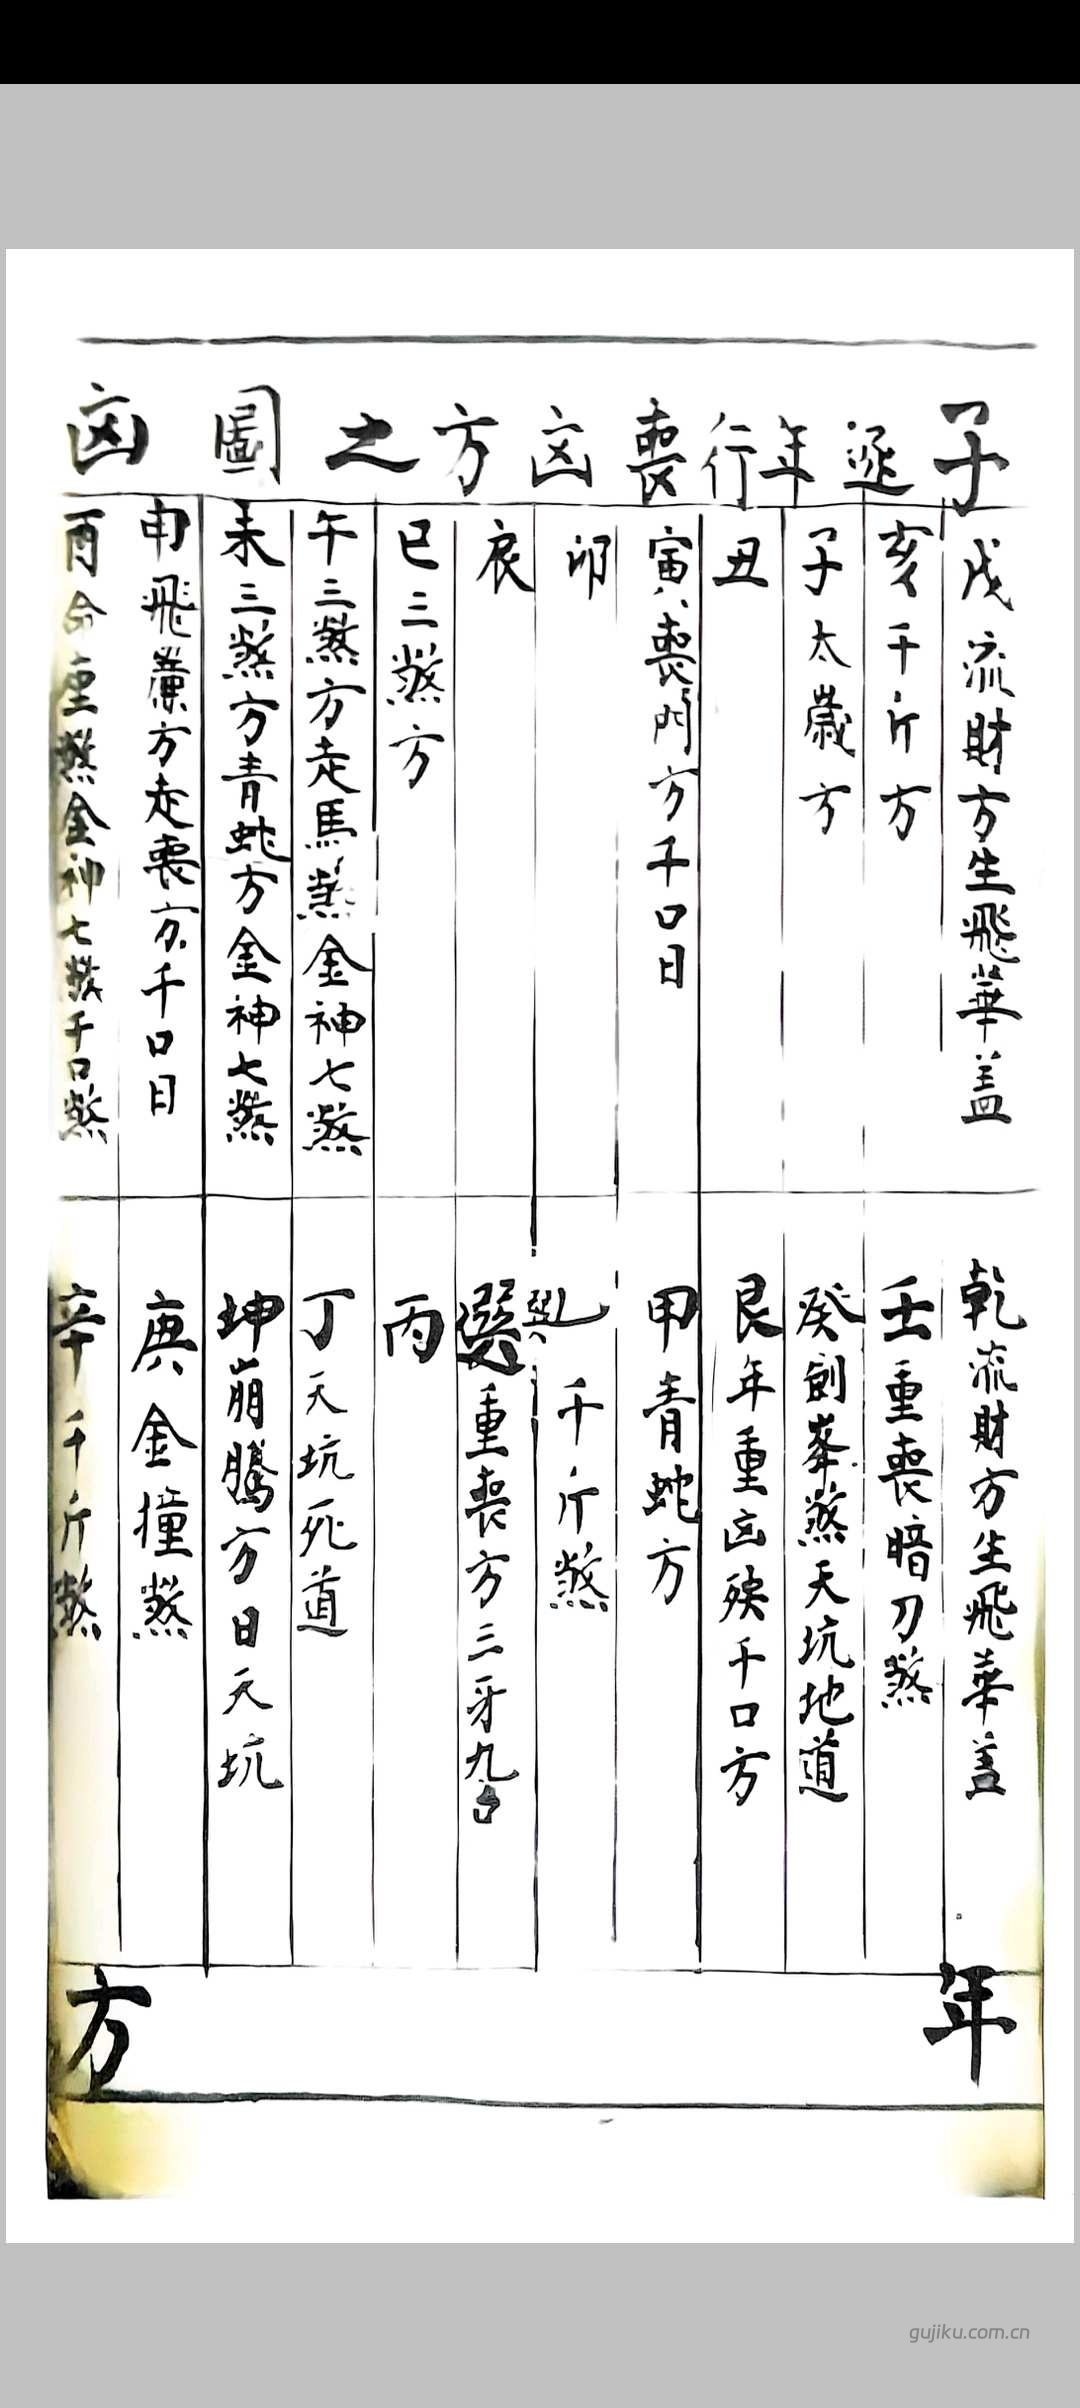 子逐年行喪凶方之圖凶
戌流財方生飛華盖
亥千斤方
子太歲方
丑
寅喪門方千口日
卯
辰
巳三煞方
午三煞方走馬煞金神七煞
未三煞方青蛇方金神七煞
申飛簾方走喪方千口日
酉 重煞金神七煞千口煞
乾流財方生飛華盖
壬重喪暗刀煞
癸劍峯煞天坑地道
艮年重凶殃千口方
甲青蛇方
乙千斤煞
巽重喪方三牙九
丙
丁天坑死道
坤崩騰方日天坑
庚金撞煞
辛千斤煞
年 方
gujiku.com.cn